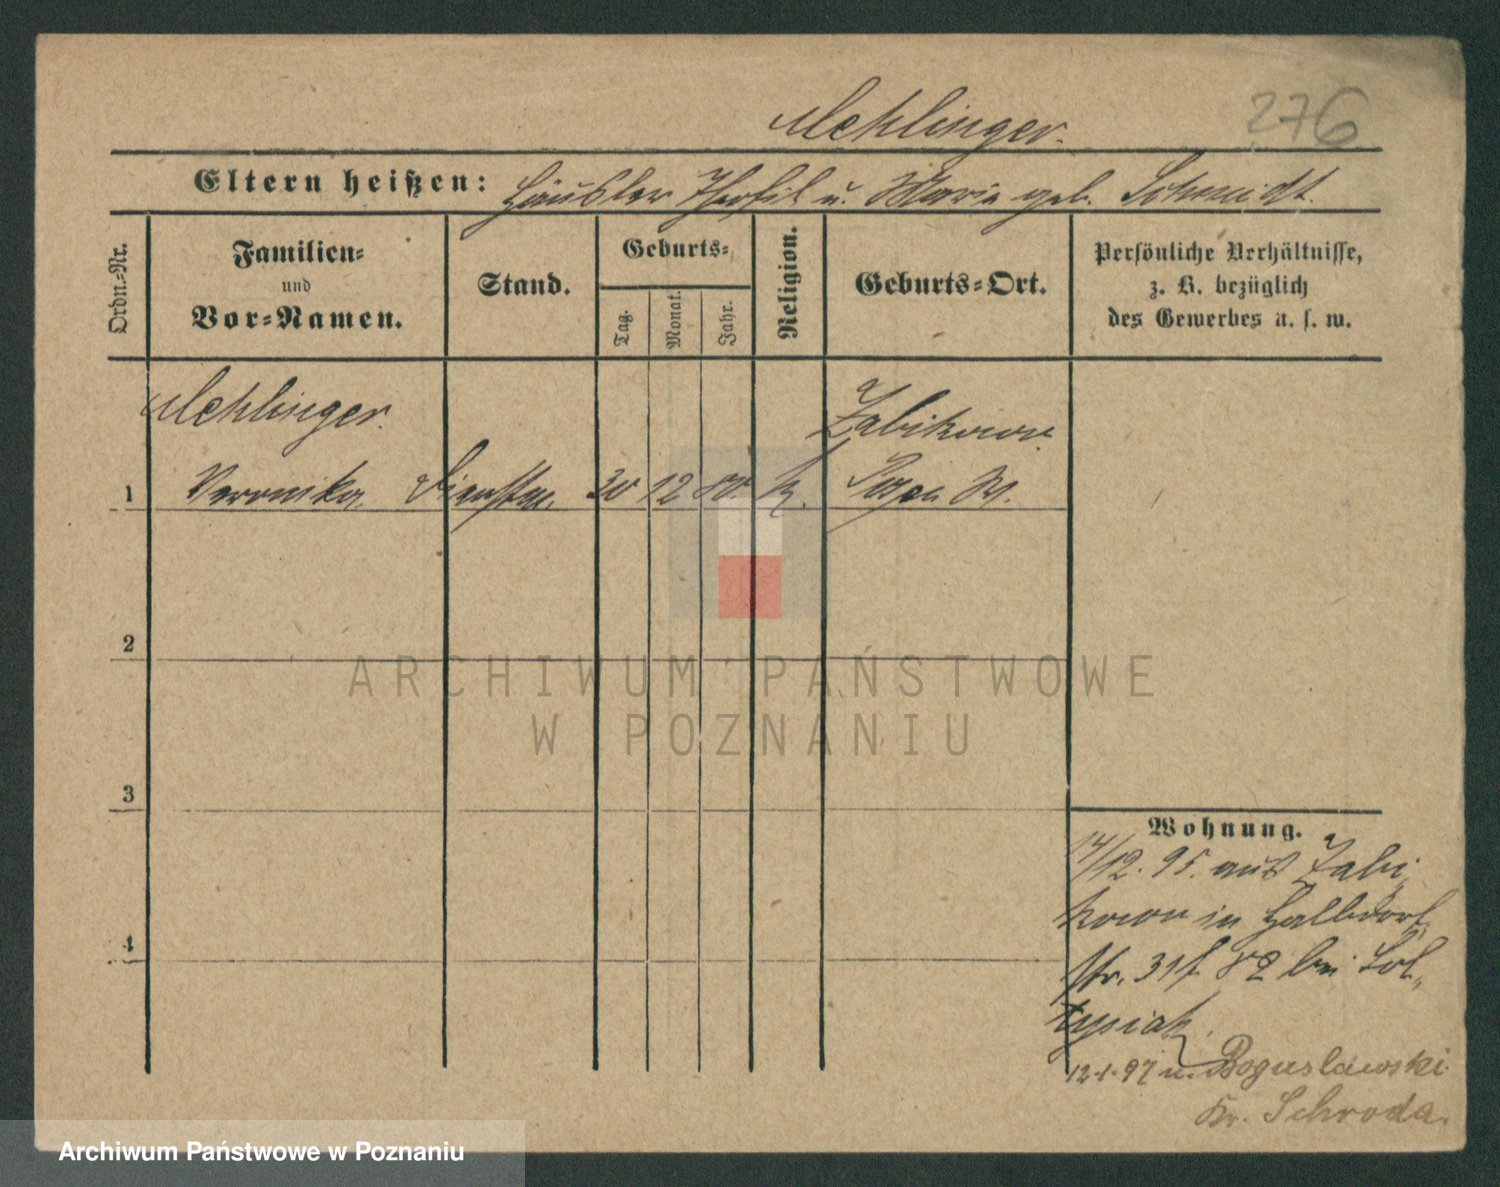 276
Mehlinger.
Eltern heißen: Häusler Theofil u. Maria geb. Schmidt.
Ordn.-Nr.
Familien-
und
Vor-Namen.
Stand.
Geburts-
Tag.
Monat.
Jahr.
Religion.
Geburts-Ort.
Persönliche Verhältnisse,
z. B. bezüglich
des Gewerbes u. s. w.
Mehlinger. Zabikowo.
1 Veronika Dienstm. 30 12 80. k. Posen W.
2
3
4
Wohnung.
14/12. 95. aus Zabi-
kowo in Halbdorf-
str. 31 bei
12.1.97 n. Boguslawski
Kr. Schroda.
ARCHIWUM PAŃSTWOWE
W POZNANIU
Archiwum Państwowe w Poznaniu